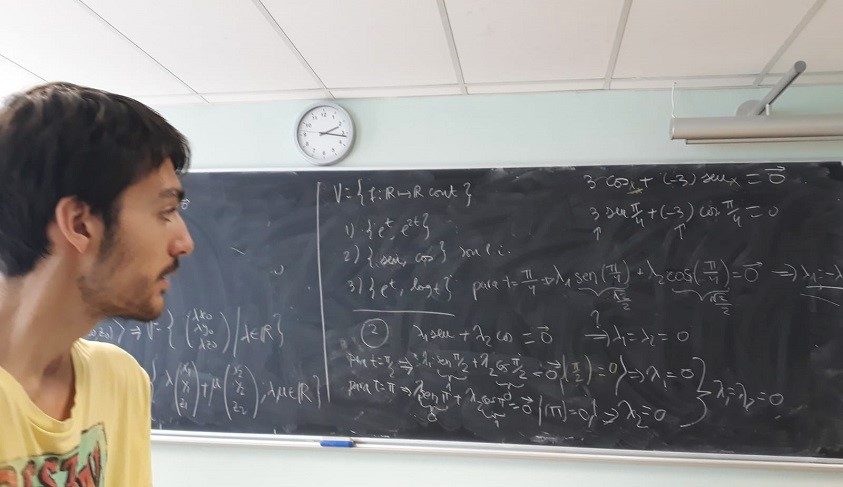 V = { f: R → R cont }
1) { e^t, e^{2t} }
2) { sen, cos } son l.i.
3) { e^t, log t }
3 cos x + (-3) sen x = 0⃗
3 sen π/4 + (-3) cos π/4 = 0
para t = π/4 ⇒ λ₁ sen(π/4) + λ₂ cos(π/4) = 0⃗ ⇒ λ₁ = -λ
√2/2 √2/2
② λ₁ sen + λ₂ cos = 0⃗ ⇒ λ₁ = λ₂ = 0
?
para t = π/2 ⇒ λ₁ sen π/2 + λ₂ cos π/2 = 0⃗(π/2) = 0 ⇒ λ₁ = 0
para t = π ⇒ λ₁ sen π + λ₂ cos π = 0⃗(π) = 0 ⇒ λ₂ = 0
λ₁ = λ₂ = 0
⇒ V = { (λx₀ λy₀ λz₀) | λ ∈ R }
λ (x₁ y₁ z₁) + μ (x₂ y₂ z₂), λ, μ ∈ R }